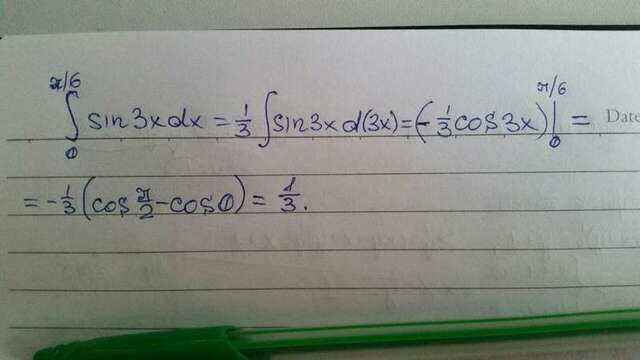 ∫₀^π/6 sin3xdx = 1/3 ∫sin3xd(3x) = (-1/3 cos3x)|₀^π/6 =
Date
= -1/3 (cos π/2 - cos0) = 1/3.